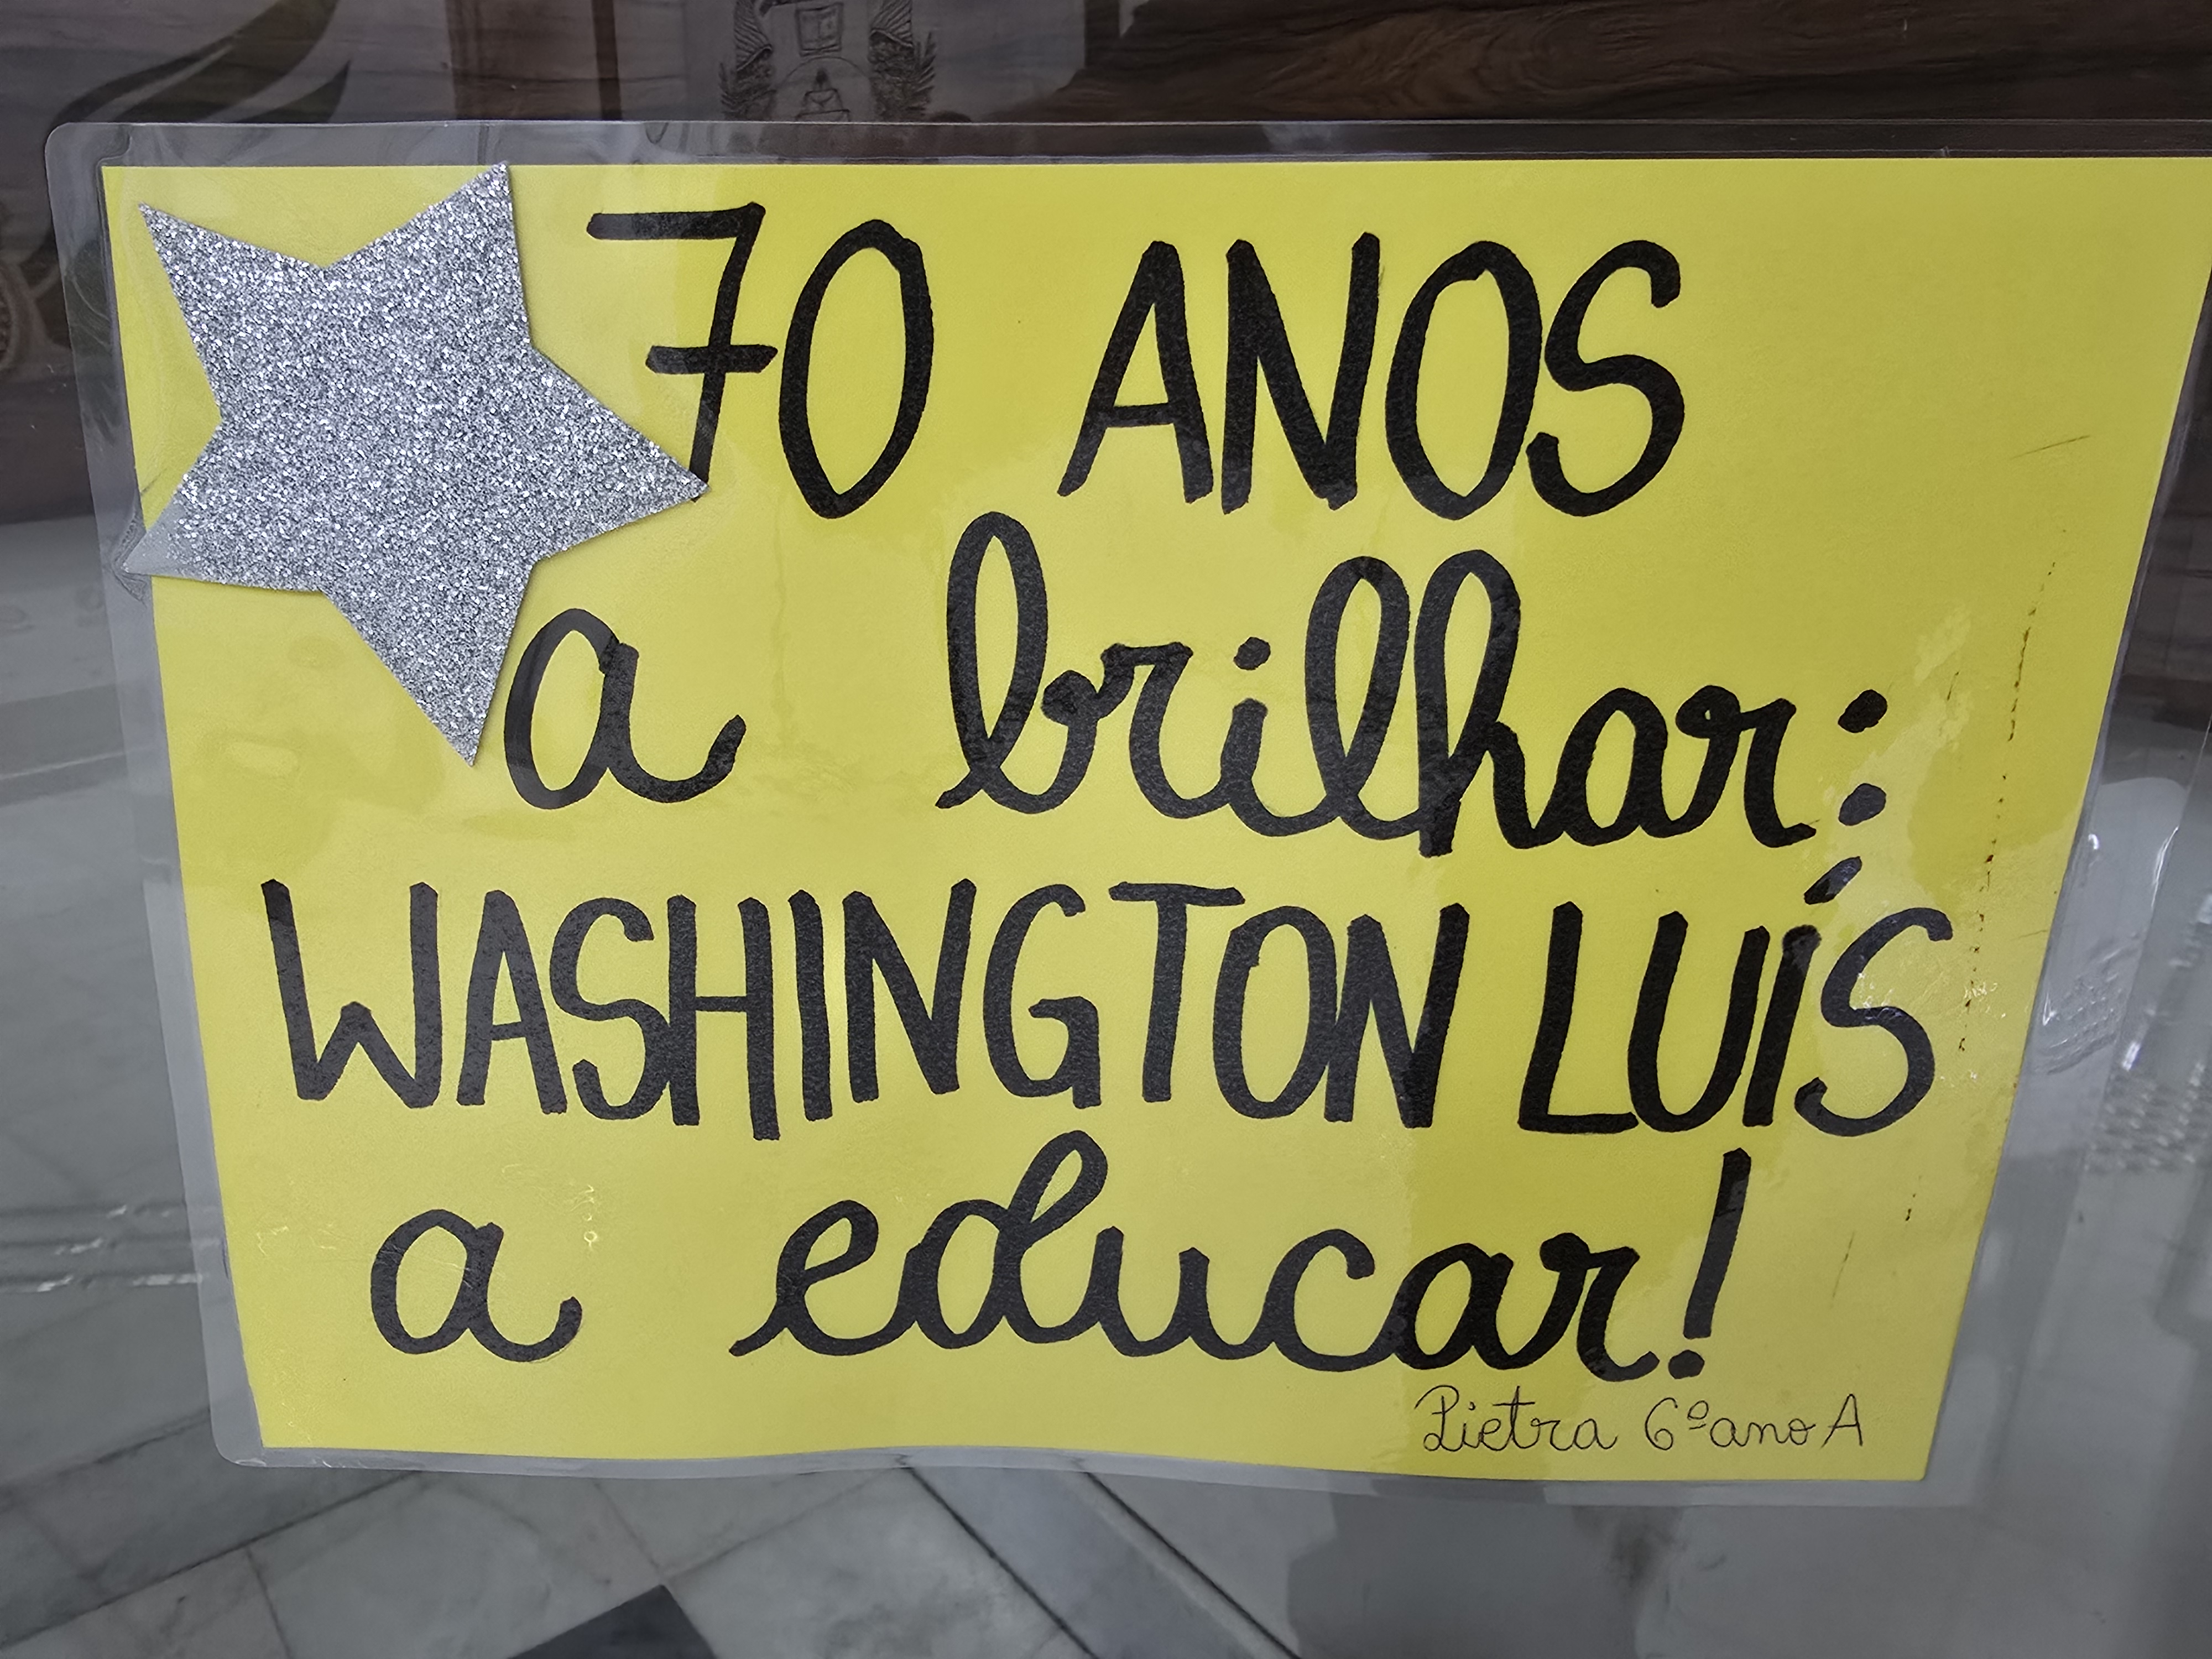 70 ANOS
a brilhar:
WASHINGTON LUÍS
a educar!
Pietra 6º ano A